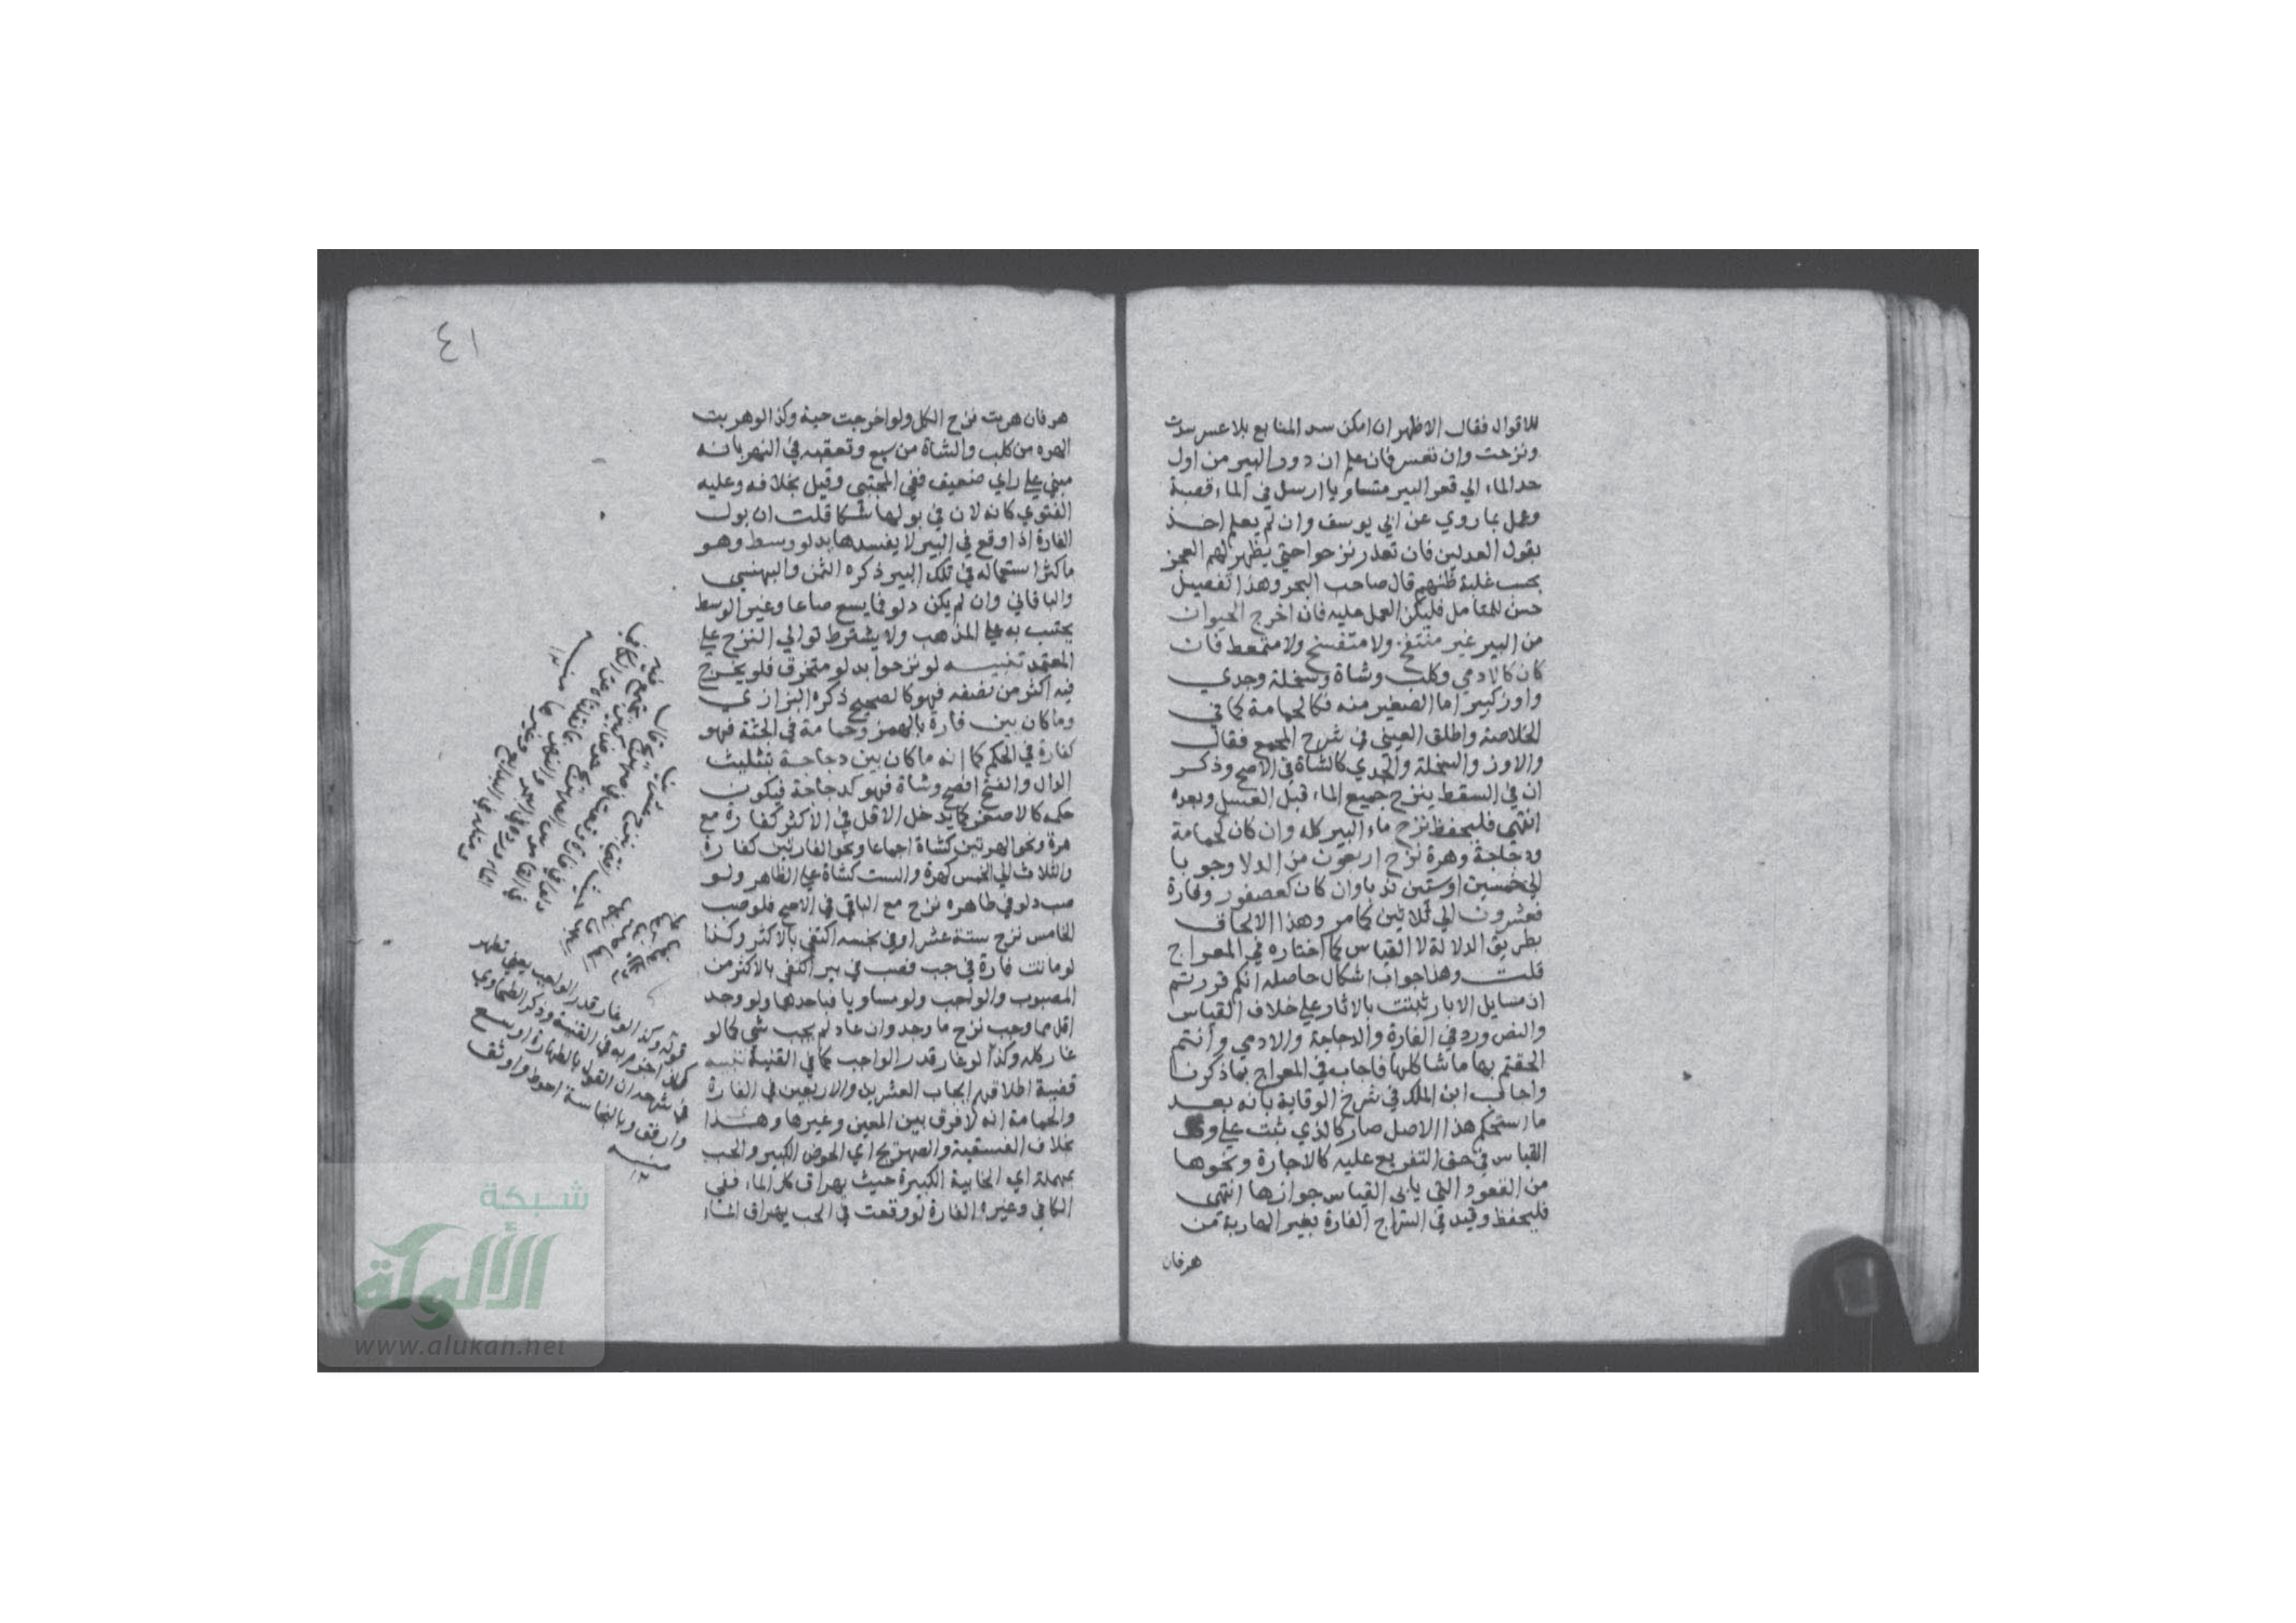 للاقوال فقال الاظهر ان امكن سد المنابع بلا عسر سدت
ونزحت وان تعسر فان علم ان دور البير من اول
حد الماء الي قعر البير متساويا ارسل في الماء قصبة
وعمل بما روي عن ابي يوسف وان لم يعلم اخذ
بقول العدلين فان تعذر نزحوا حتي يظهر لهم العجز
بحسب غلبة ظنهم قال صاحب البحر وهذا تفصيل
حسن للمتامل فليكن العمل عليه فان اخرج الحيوان
من البير غير منتفخ ولا متفسخ ولا متمعط فان
كان كالادمي وكلب وشاة وسخلة وجدي
واوز كبير اما الصغير منه فكالحمامة كما في
الخلاصة واطلق العيني في شرح المجمع فقال
والاوز والسخلة والجدي كالشاة في الاصح وذكر
ان في السقط ينزح جميع الماء قبل الغسل وبعده
انتهي فليحفظ نزح ماء البير كله وان كان كحمامة
ودجاجة وهرة نزح اربعون من الدلا وجوبا
الي خمسين او ستين ندبا وان كان كعصفور وفارة
فعشرون الي ثلاثين كما مر وهذا الالحاق
بطريق الدلالة لا القياس كما اختاره في المعراج
قلت وهذا جواب اشكال حاصله انكم قررتم
ان مسايل الابار ثبتت بالاثار علي خلاف القياس
والنص ورد في الفارة والدجاجة والادمي وانتم
الحقتم بها ما شاكلها فاجاب في المعراج بما ذكرنا
واجاب ابن الملك في شرح الوقاية بانه بعد
ما استحكم هذا الاصل صار كالذي ثبت علي وفق
القياس في حق التفريع عليه كالاجارة ونحوها
من العقود التي يابي القياس جوازها انتهي
فليحفظ وقيد في السراج الفارة بغير الهاربة من
هر فان
٤١
هر فان هربت نزح الكل ولو اخرجت حية وكذا لو هربت
الهره من كلب والشاة من سبع وتعقبه في النهر بانه
مبني علي راي ضعيف ففي المجتبي وقيل بخلافه وعليه
الفتوي كانه لان في بولها شكا قلت ان بول
الفارة اذا وقع في البير لا يفسدها بدلو وسط وهو
ما كثر استعماله في تلك البير ذكره الثمن والبهنسي
والباقاني وان لم يكن دلو فما يسع صاعا وغير الوسط
يحتسب به علي المذهب ولا يشترط توالي النزح علي
المعتمد تنبيه لو نزحوا بدلو متخرق فلو يخرج
فيه اكثر من نصفه فهو كالصحيح ذكره البزازي
وما كان بين فارة بالهمز وحمامة في الجثة فهو
كفارة في الحكم كما انه ما كان بين دجاجة بتثليث
الدال والفتح افصح وشاة فهو كدجاجة فيكون
حكمه كالاصغر كما يدخل الاقل في الاكثر كفارة مع
هرة ونحو الهرتين كشاة اجماعا ونحو الفارتين كفارة
والثلاث الي الخمس كهرة والست كشاة علي الظاهر ولو
صب دلو في طاهره نزح مع الباقي في الاصح فلو صب
الخامس نزح ستة عشر او في نجسه اكتفي بالاكثر وكذا
لو ماتت فارة في جب فصب في بير اكتفي بالاكثر من
المصبوب والواجب ولو مساويا فباحدهما ولو وجد
اقل مما وجب نزح ما وجد وان عاد لم يجب شي كما لو
غار كله وكذا لو غار قدر الواجب كما في القنية تنبيه
قضية اطلاقهم ايجاب العشرين والاربعين في الفارة
والحمامة انه لا فرق بين المعين وغيرها وهذا
بخلاف الفسقية والصهريج اي الحوض الكبير والحب
بمهملة اي الخابية الكبيرة حيث يهراق كل الماء ففي
الكافي وغيره الفارة لو وقعت في الحب يهراق الماء
قوله وكذا لو غار قدر الواجب يعني تطهر
في شرحه ان القول بالطهارة اوسع
وارفق وبالنجاسة احوط واوثق
منه
شبكة
الألوكة
www.alukah.net